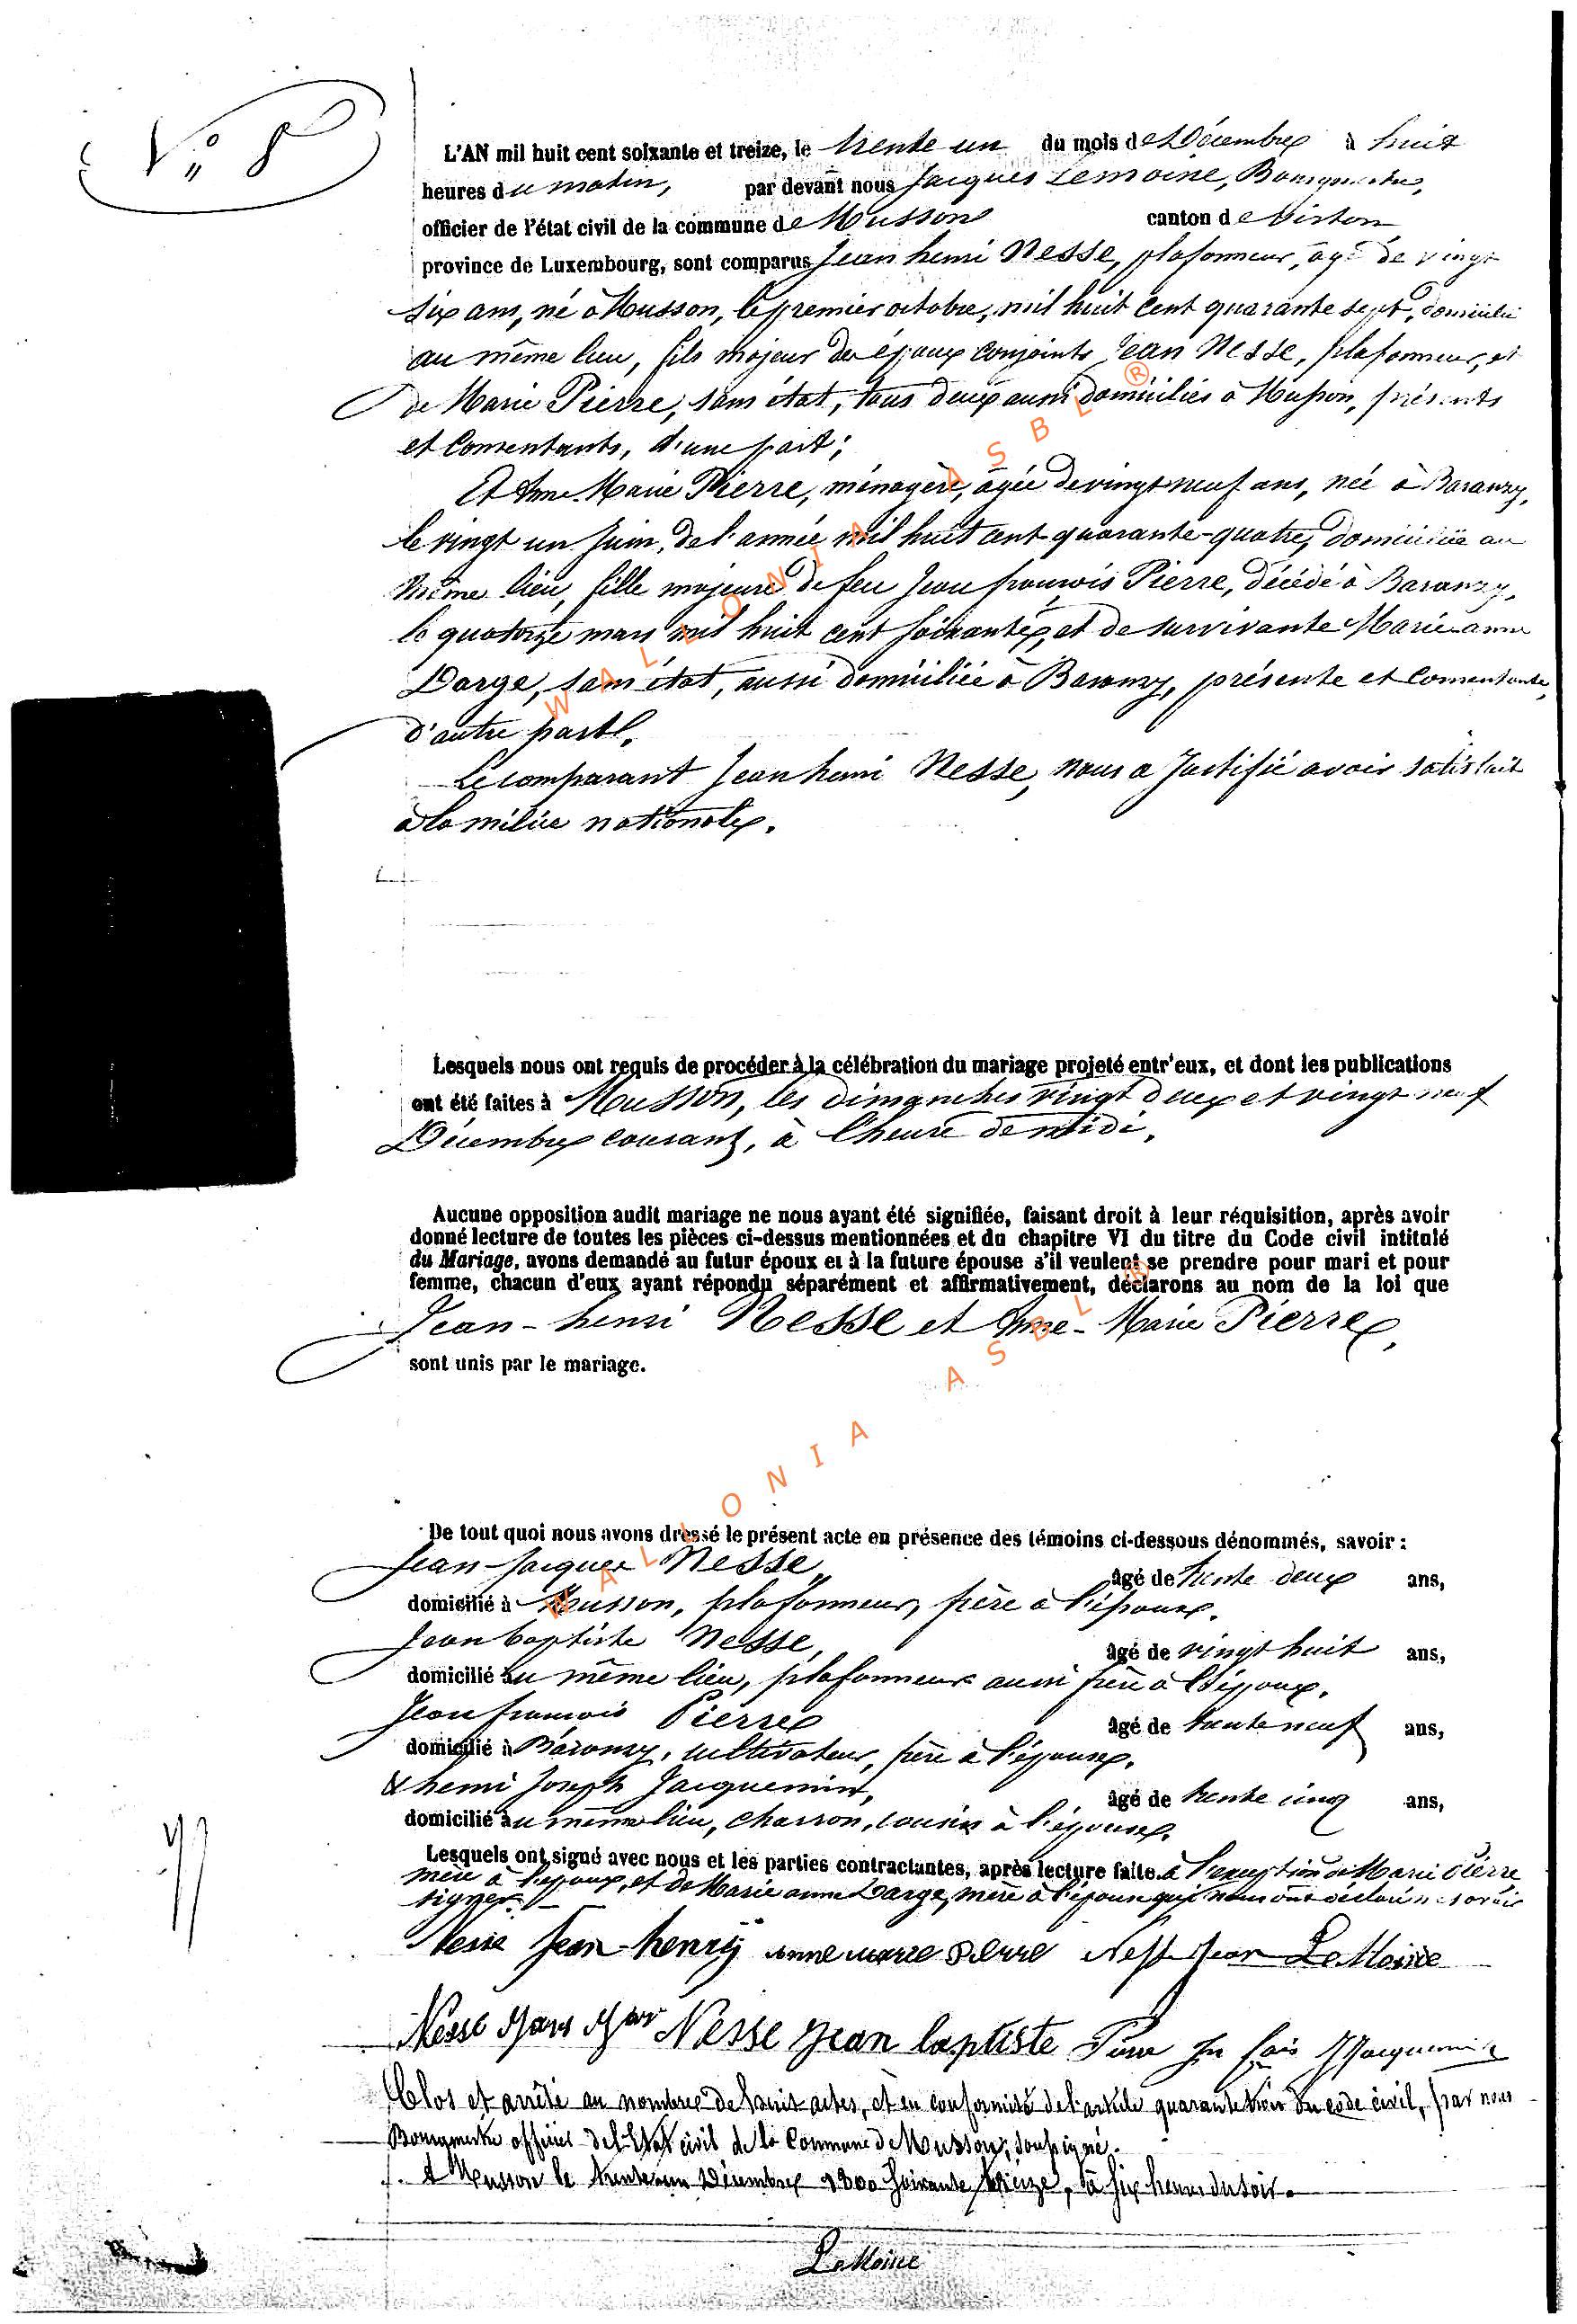 N° 8
L'AN mil huit cent soixante et treize, le trente un du mois de Décembre à huit
heures du matin, par devant nous Jacques Lemoine, Bourgmestre,
officier de l'état civil de la commune de Musson canton de Virton
province de Luxembourg, sont comparus Jean henri Nesse, plafonneur, âgé de vingt
six ans, né à Musson, le premier octobre, mil huit cent quarante sept, domicilié
au même lieu, fils majeur des époux conjoints Jean Nesse, plafonneur, et
de Marie Pierre, sans état, tous deux aussi domiciliés à Musson, présents
et Consentants, d'une part;
Et Anne-Marie Pierre, ménagère, âgée de vingt neuf ans, née à Baranzy,
le vingt un Juin, de l'année mil huit cent quarante-quatre, domiciliée au
même lieu, fille majeure de feu Jean françois Pierre, décédé à Baranzy,
le quatorze mars mil huit cent soixante, et de survivante Marie-anne
Darge, sans état, aussi domiciliée à Baranzy, présente et Consentante,
d'autre part.
Le comparant Jean henri Nesse, nous a Justifié avoir satisfait
à la milice nationale.
Lesquels nous ont requis de procéder à la célébration du mariage projeté entr'eux, et dont les publications
ont été faites à Musson, les dimanches vingt deux et vingt neuf
Décembre courant, à l'heure de midi.
Aucune opposition audit mariage ne nous ayant été signifiée, faisant droit à leur réquisition, après avoir
donné lecture de toutes les pièces ci-dessus mentionnées et du chapitre VI du titre du Code civil intitulé
du Mariage, avons demandé au futur époux et à la future épouse s'il veulent se prendre pour mari et pour
femme, chacun d'eux ayant répondu séparément et affirmativement, déclarons au nom de la loi que
Jean-henri Nesse et Anne-Marie Pierre,
sont unis par le mariage.
De tout quoi nous avons dressé le présent acte en présence des témoins ci-dessous dénommés, savoir :
Jean-Jacques Nesse, âgé de trente deux ans,
domicilié à Musson, plafonneur, frère à l'époux.
Jean baptiste Nesse, âgé de vingt huit ans,
domicilié au même lieu, plafonneur aussi frère à l'époux.
Jean françois Pierre âgé de trente neuf ans,
domicilié à Baranzy, cultivateur, frère à l'épouse.
& henri Joseph Jacquemin, âgé de trente cinq ans,
domicilié au même lieu, charron, cousin à l'épouse.
Lesquels ont signé avec nous et les parties contractantes, après lecture faite à l'exception de Marie Pierre
mère à l'époux, et de Marie anne Darge, mère à l'épouse qui nous ont déclaré ne savoir
signer.
Nesse Jean-henry anne marie pierre Nesse Jean LeMoine
Nesse Nesse Jean baptiste Pierre Jacquemin
Clos et arrêté au nombre de huit actes, et en conformité de l'article quarante trois du code civil, par nous
Bourgmestre officier de l'Etat civil de la Commune de Musson, soussigné.
A Musson le trente un Décembre 1800 soixante treize, à six heures du soir.
LeMoine
WALLONIA ASBL ®
WALLONIA ASBL ®